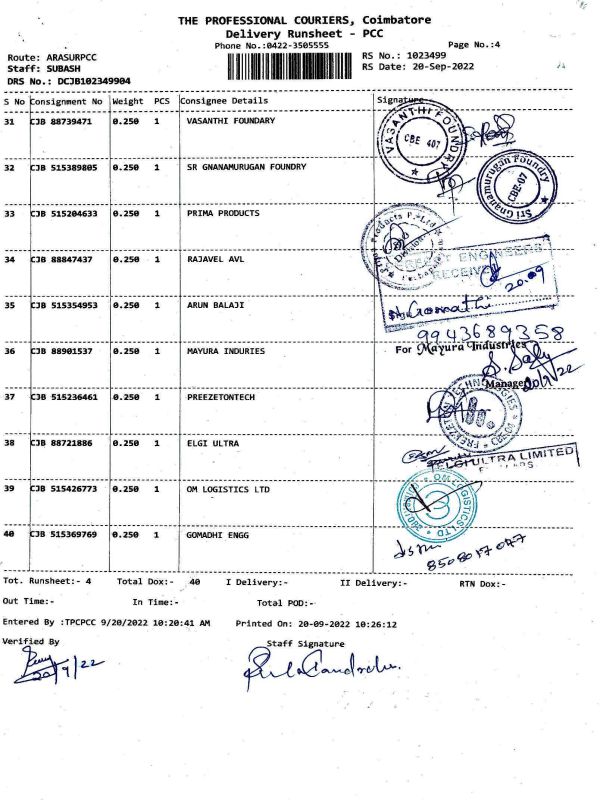 THE PROFESSIONAL COURIERS, Coimbatore
Delivery Runsheet - PCC
Phone No.:0422-3505555
Page No.:4
Route: ARASURPCC
RS No.: 1023499
Staff: SUBASH
RS Date: 20-Sep-2022
DRS No.: DCJB102349904
S No Consignment No Weight PCS Consignee Details Signature
31 CJB 88739471 0.250 1 VASANTHI FOUNDARY
VASANTHI FOUNDRY
CBE 407
32 CJB 515389805 0.250 1 SR GNANAMURUGAN FOUNDRY
Sri Gnanamurugan Foundry
CBE-07
33 CJB 515204633 0.250 1 PRIMA PRODUCTS
Products P. Ltd
Division
34 CJB 88847437 0.250 1 RAJAVEL AVL
ENGINEERS
RECEIVED
20.09
35 CJB 515354953 0.250 1 ARUN BALAJI
Gomathi
9943689358
36 CJB 88901537 0.250 1 MAYURA INDURIES
For Mayura Industries
Manager
20/9/22
37 CJB 515236461 0.250 1 PREEZETONTECH
TECHNOLOGIES
38 CJB 88721886 0.250 1 ELGI ULTRA
ELGI ULTRA LIMITED
39 CJB 515426773 0.250 1 OM LOGISTICS LTD
OM LOGISTICS LTD
40 CJB 515369769 0.250 1 GOMADHI ENGG
8508017047
Tot. Runsheet:- 4 Total Dox:- 40 I Delivery:- II Delivery:- RTN Dox:-
Out Time:- In Time:- Total POD:-
Entered By :TPCPCC 9/20/2022 10:20:41 AM Printed On: 20-09-2022 10:26:12
Verified By
Staff Signature
20/9/22